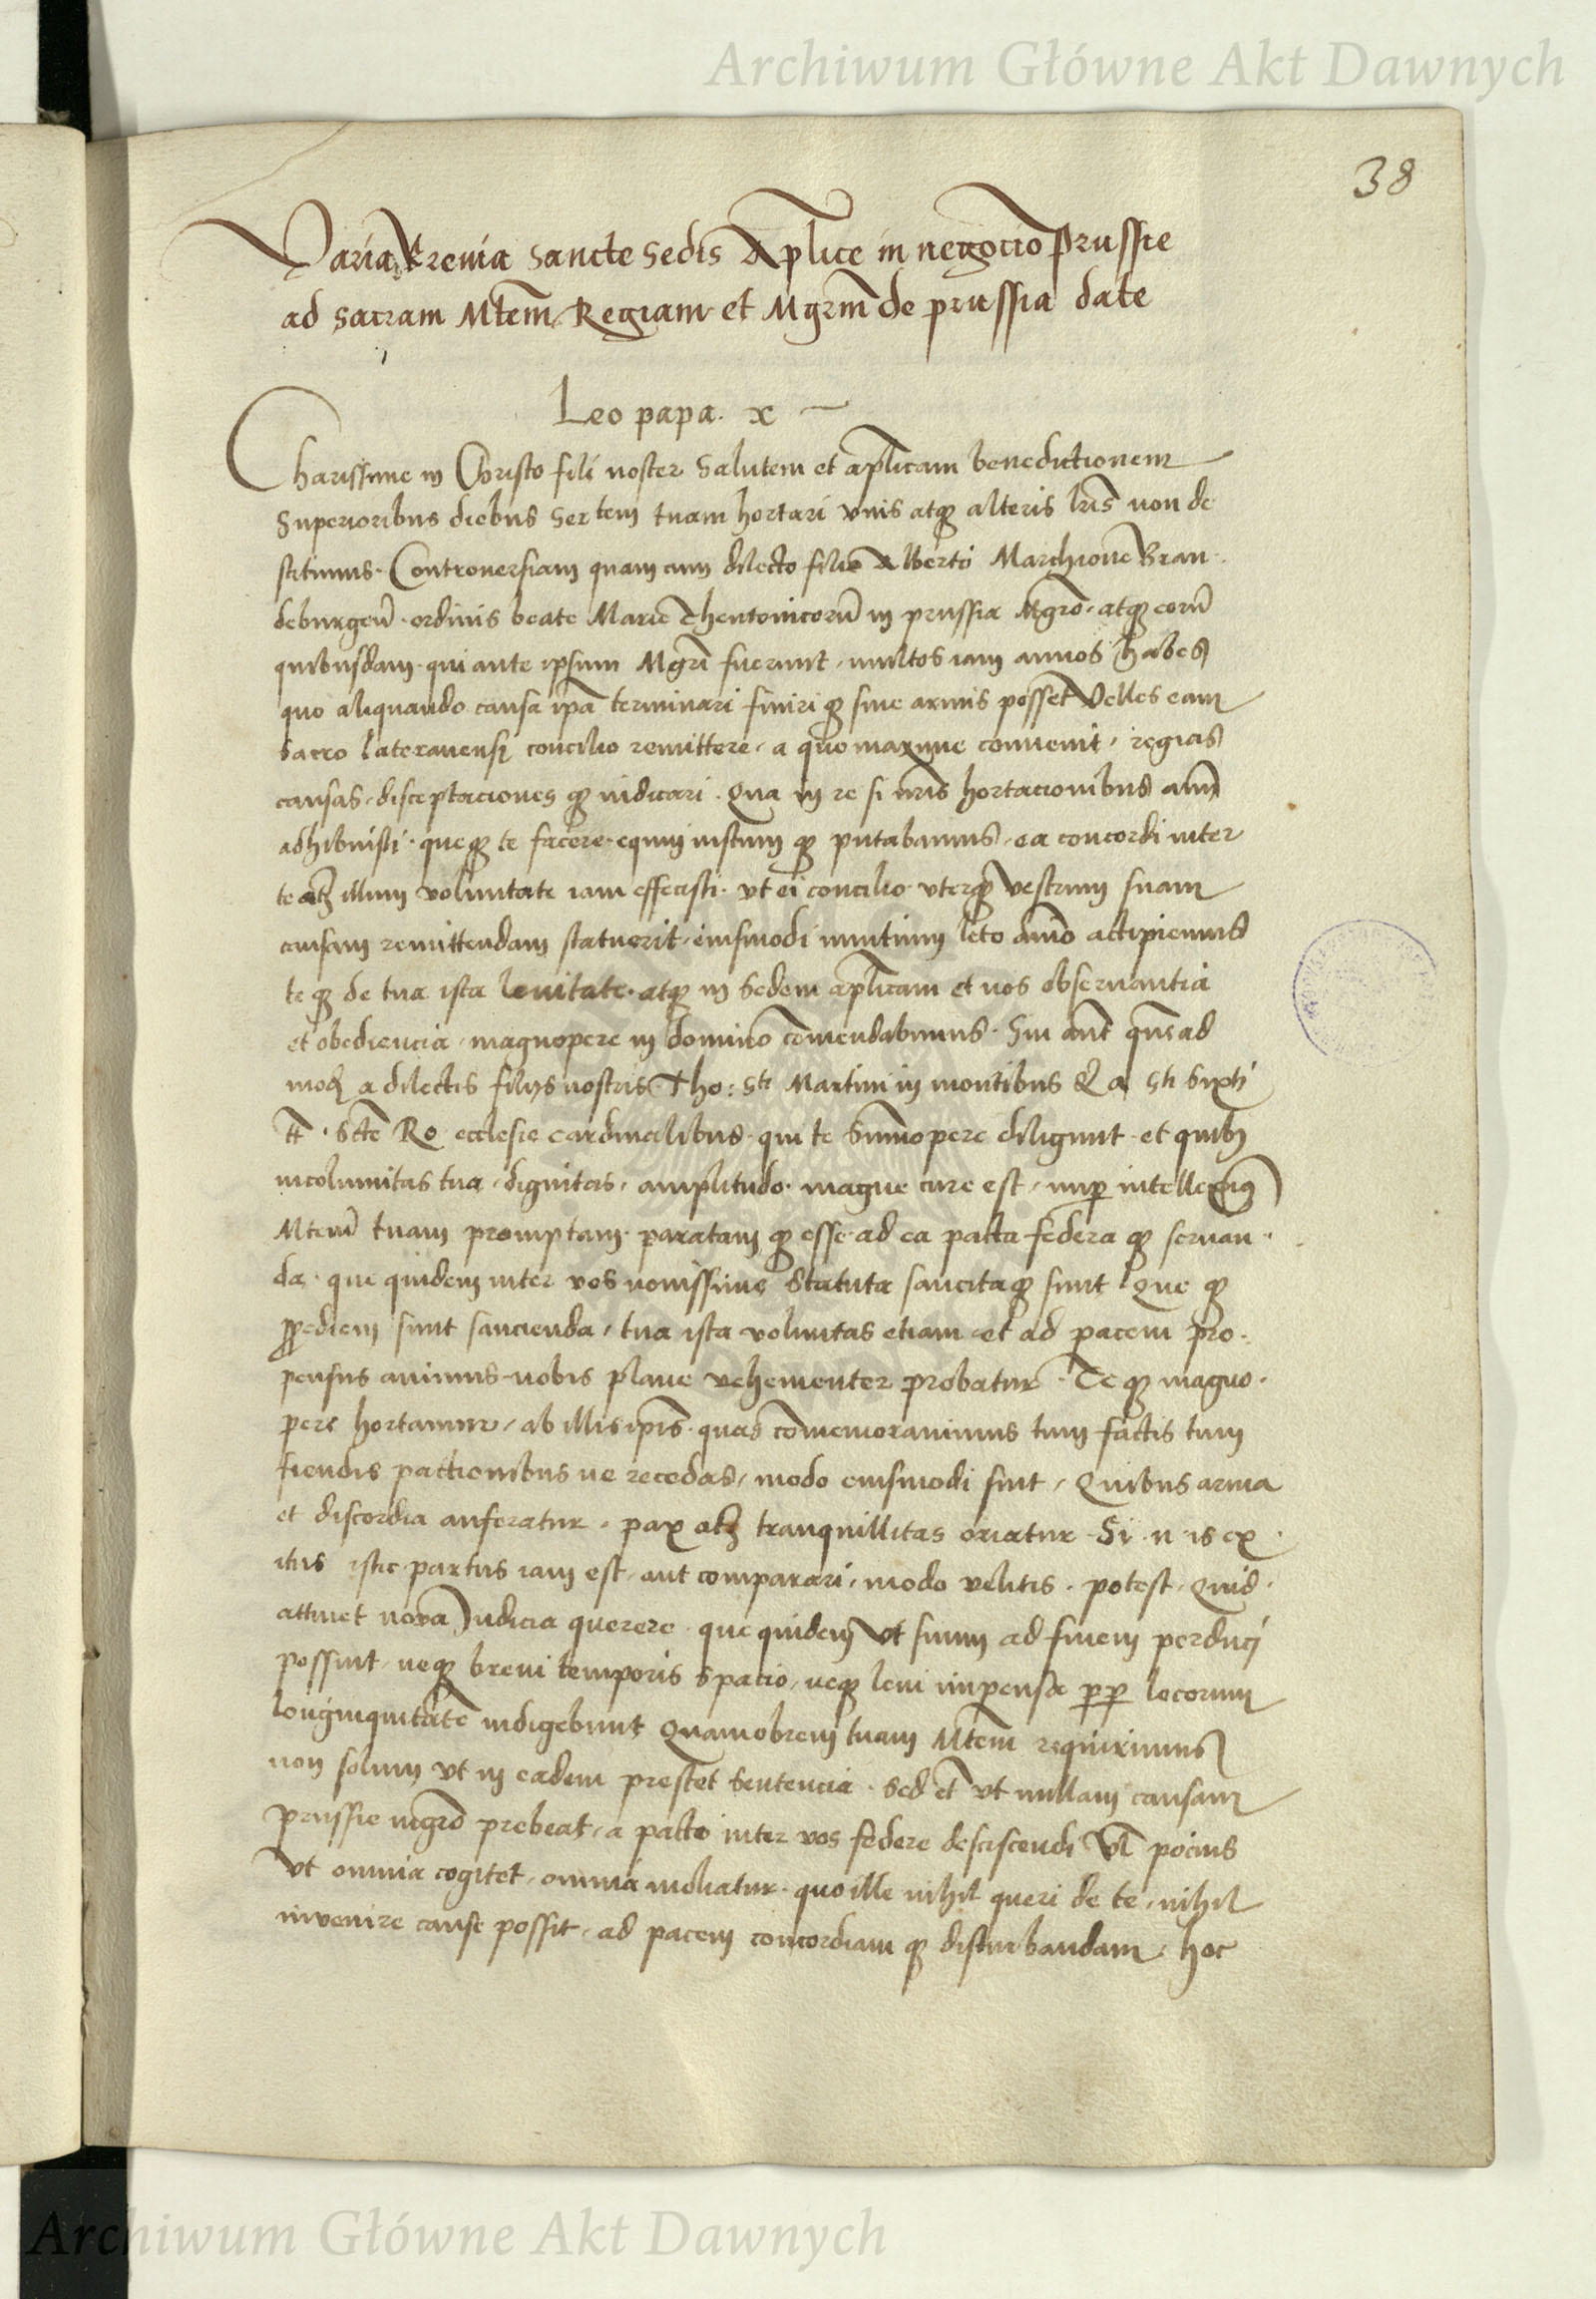 Archiwum Główne Akt Dawnych
38
Varia Brevia sancte sedis Aplice in negocio Prussie
ad sacram Mtem Regiam et Mgrm de prussia date
Leo papa. x
Charissime in Christo fili noster salutem et aplicam benedictionem
Superioribus diebus Sertem tuam hortari vnis atq alteris lris non de
stitimus. Controuersiam quam cum dilecto filio Alberto Marchione Bran.
deburgen. ordinis beate Marie Theutonicoru in prussia Mgro. atq eoru
quibusdam. qui ante ipsum Mgri fuerunt. multos iam annos habes
quo aliquando causa ipa terminari finiri q sine armis posset Velles eam
Sacro lateranensi concilio remittere, a quo maxime conuenit, regias
causas, disceptaciones q iudicari. Qua in re si nris hortacionibus aim
adhibuisti. queq te facere. equm iustum q putabamus, ea concordi inter
te atz illum voluntate iam effecisti. vt ei concilio vterq vestrum suam
causam remittendam statuerit, eiusmodi nuntium leto aimo accipiemus
te q de tua ista leuitate. atq in Sedem aplicam et nos obseruantia
et obediencia, magnopere in domino comendabimus. Sin aut quead
mod a dilectis filijs nostris Tho: sti Martini in montibus & A sti Sixti
tt. Scte Ro ecclesie cardinalibus. qui te summopere diligunt. et quib
incolumitas tua, dignitas, amplitudo. magne cure est, nup intelleximus
Mtem tuam promptam. paratam q esse. ad ea pacta federa q seruan.
da. que quidem inter vos nouissime Statuta sancitaq sunt Que q
ppediem sunt sancienda, tua ista voluntas etiam et ad pacem pro.
pensus animus nobis plane vehementer probatur. Te q magno.
pere hortamur, ab illis ipis. quas comemorauimus tum factis tum
fiendis pactionibus ne recedas, modo eiusmodi sint, Quibus arma
et discordia auferatur. pax atz tranquillitas oriatur. Si. n. is ex.
itus istic partus iam est, aut comparari, modo velitis. potest, Quid.
attinet nova Judicia querere. que quidem vt suum ad finem perduci
possint, neq breui temporis spacio, neq leui impensa pp locorum
longinquitate indigebunt Quamobrem tuam Mtem requirimus
non solum vt in eadem prestet Sentencia. Sed et vt nullam causam
prussie mgro prebeat, a pacto inter vos federe desciscendi Vl pocius
vt omnia cogitet, omnia moliatur. quo ille nihil queri de te, nihil
invenire cause possit, ad pacem concordiam q disturbandam, hoc
Archiwum Główne Akt Dawnych